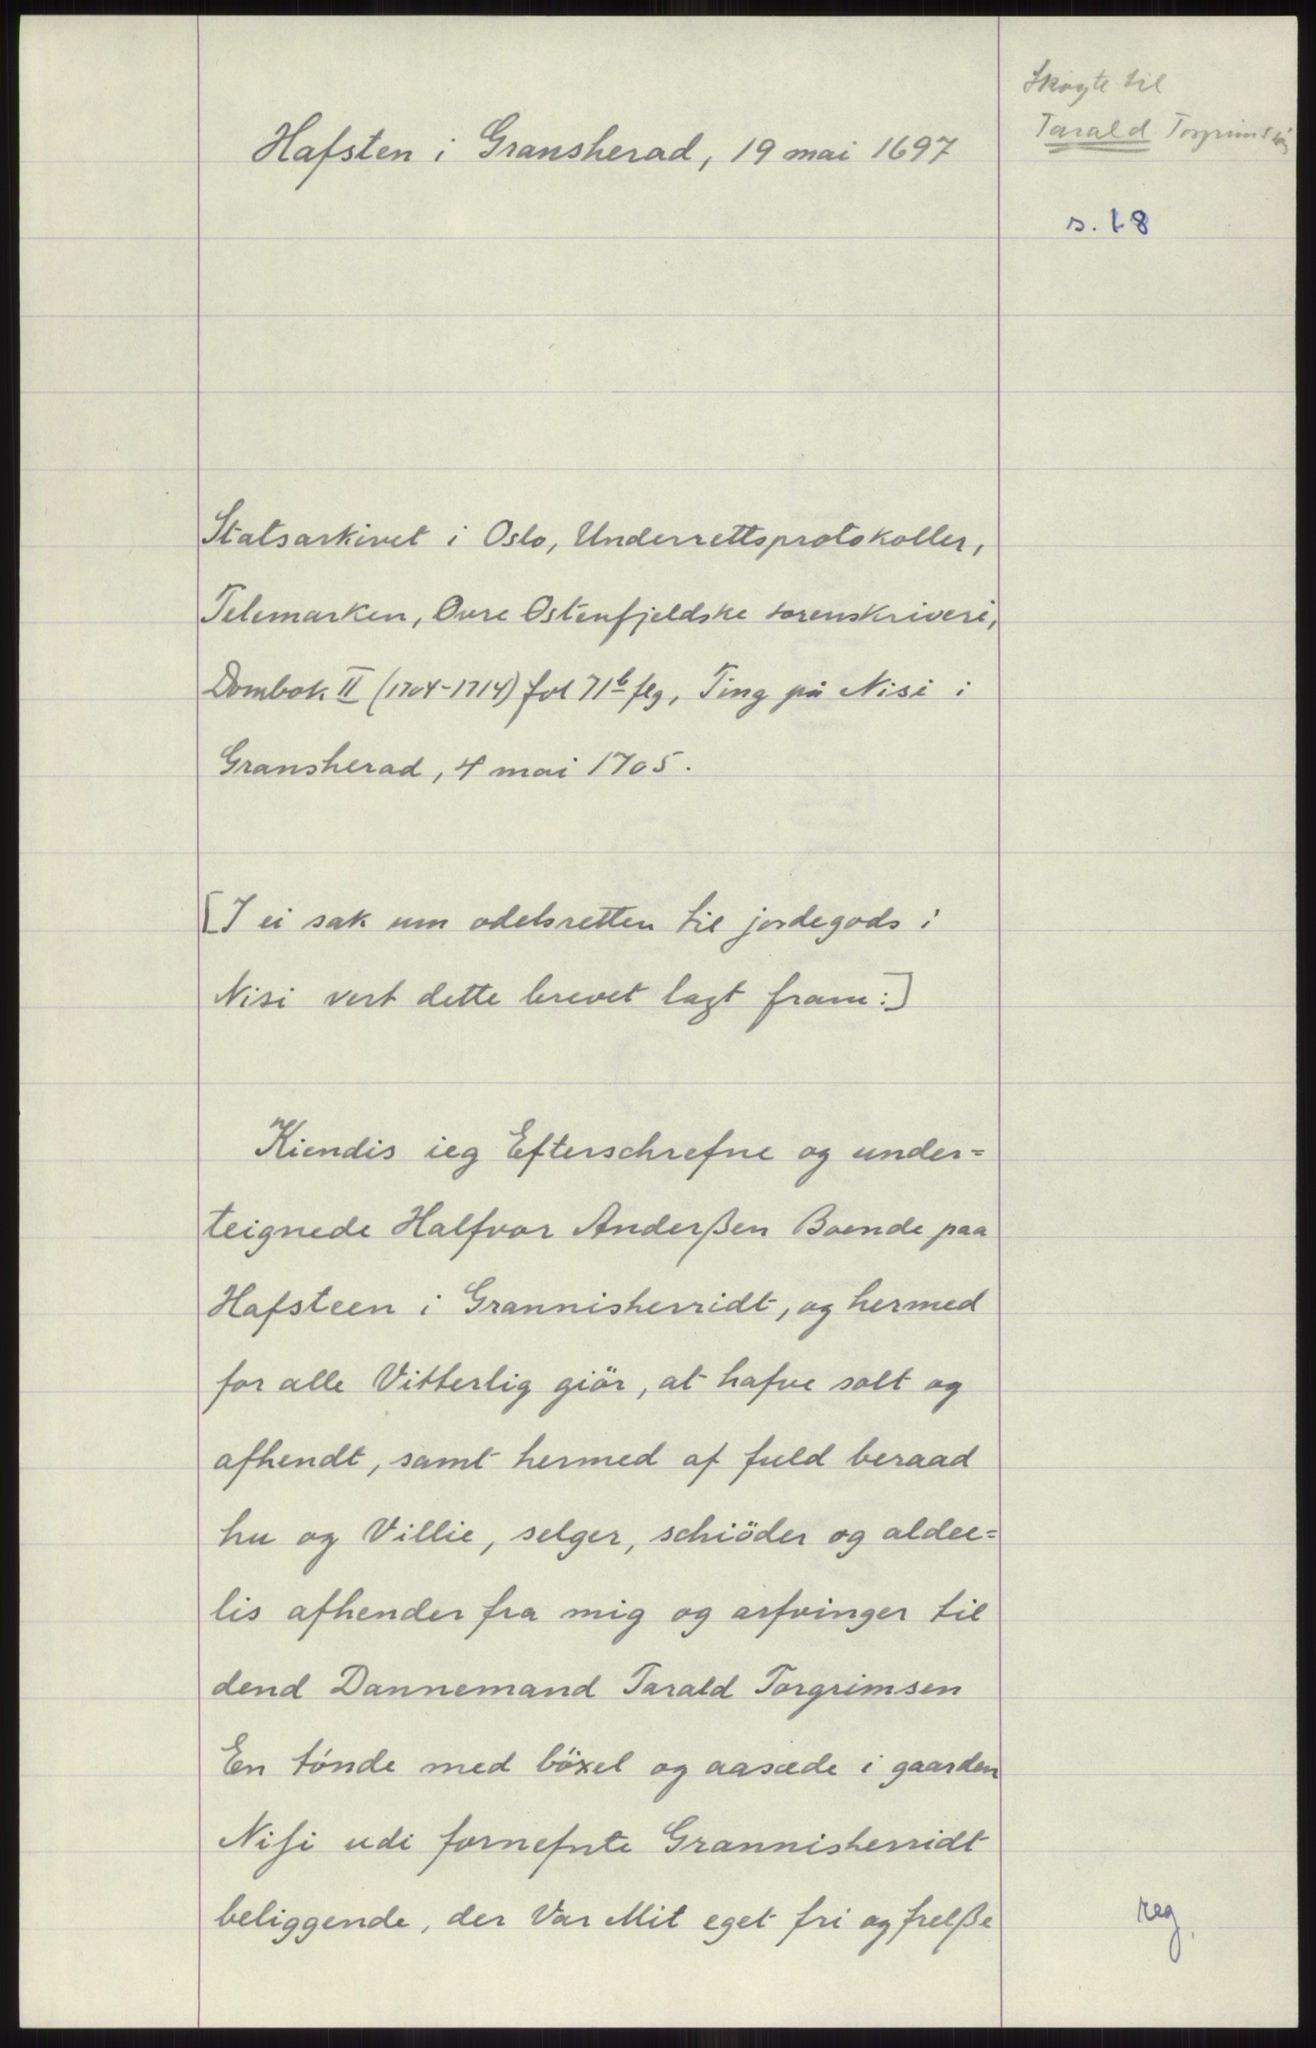 Skøyte til
Tarald Torgrimson
s. 18
Hafsten i Gransherad, 19 mai 1697
Statsarkivet i Oslo, Underrettsprotokoller,
Telemarken, Øvre Østenfjeldske sorenskriveri,
Dombok II (1704-1714) fol 71b flg, Ting på Nisi i
Gransherad, 4 mai 1705.
[I ei sak um odelsretten til jordegods i
Nisi vert dette brevet lagt fram:]
Kiendis ieg Efterschrefne og under=
teignede Halfvor Anderßen Boende paa
Hafsteen i Grannisherridt, og hermed
for alle Vitterlig giör, at hafve solt og
afhendt, samt hermed af fuld beraad
hu og Villie, selger, schiöder og aldee=
lis afhender fra mig og arfvinger til
dend Dannemand Tarald Torgrimsen
En tónde med böxel og aasæde i gaarden
Niſi udi fornefnte Grannisherridt
beliggende, der Var Mit eget fri og frelße
reg.